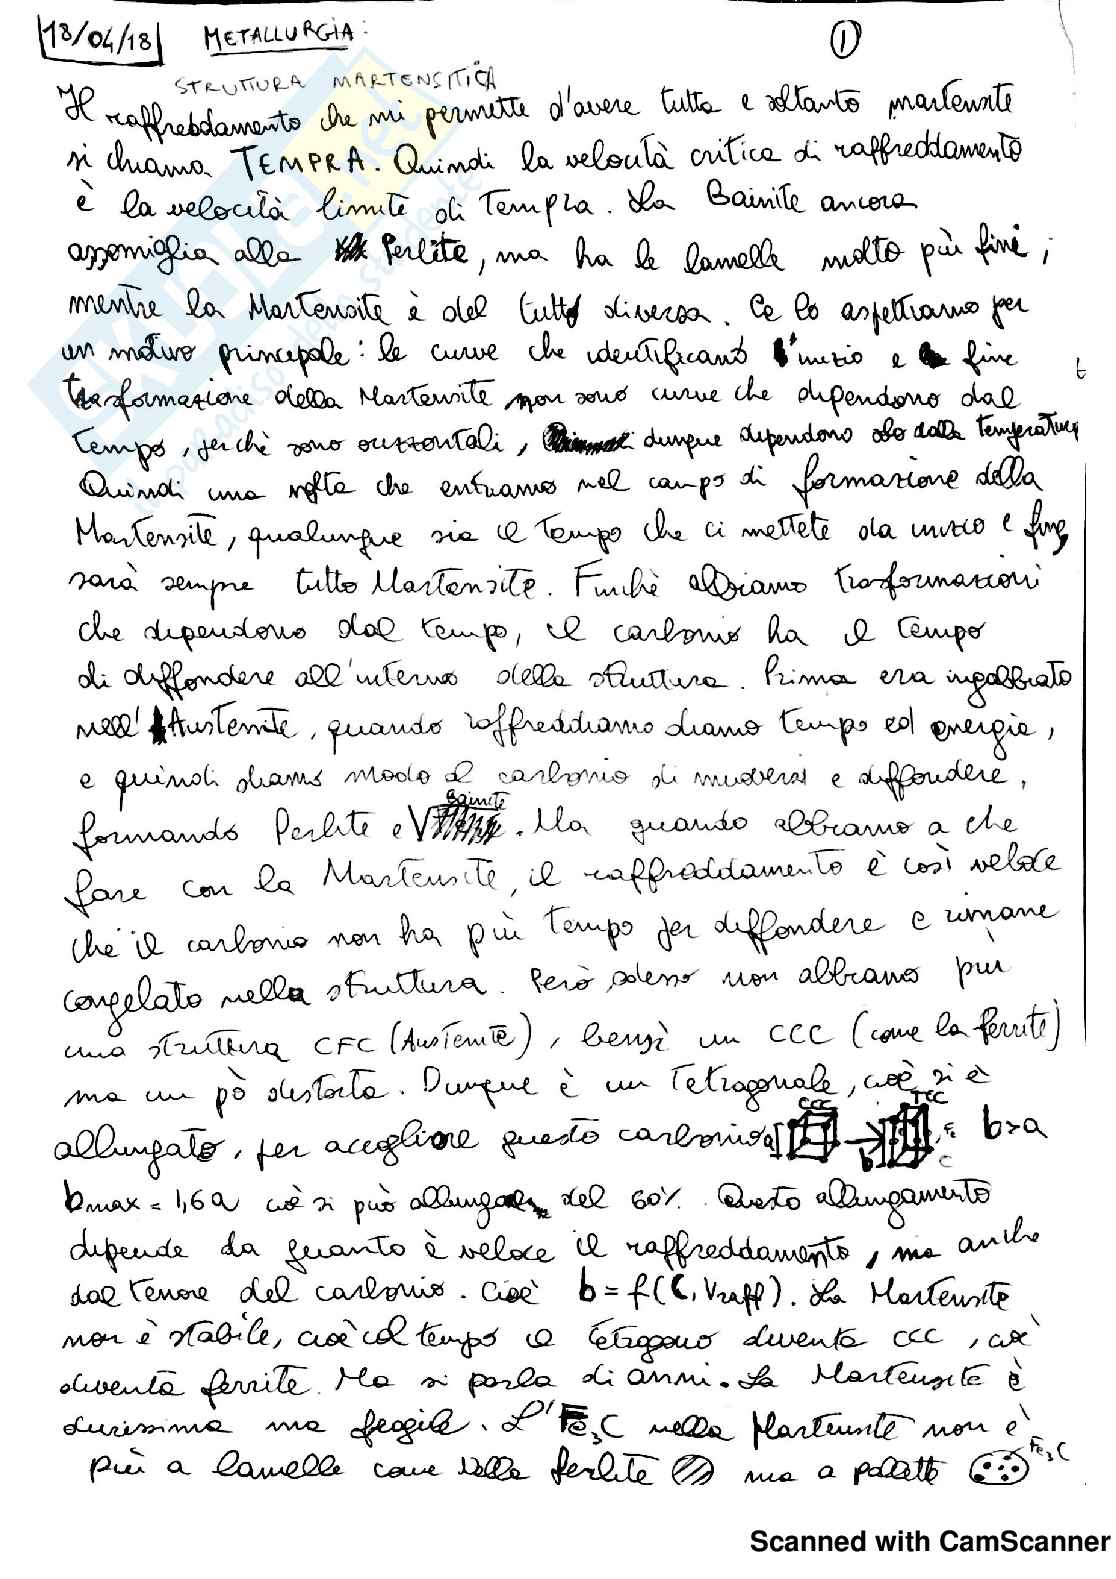 18/04/18 METALLURGIA: 1
STRUTTURA MARTENSITICA
Il raffreddamento che mi permette d'avere tutta e soltanto martensite
si chiama TEMPRA. Quindi la velocità critica di raffreddamento
è la velocità limite di Tempra. La Bainite ancora
assomiglia alla Perlite, ma ha le lamelle molto più fini,
mentre la Martensite è del tutto diversa. Ce lo aspettiamo per
un motivo principale: le curve che identificano l'inizio e fine
t
trasformazione della Martensite non sono curve che dipendono dal
tempo, perchè sono orizzontali, dunque dipendono solo dalla temperatura
Quindi una volta che entriamo nel campo di formazione della
Martensite, qualunque sia il tempo che ci mettete da inizio e fine,
sarà sempre tutto Martensite. Finchè abbiamo trasformazioni
che dipendono dal tempo, il carbonio ha il tempo
di diffondere all'interno della struttura. Prima era ingabbiato
nell'Austenite, quando raffreddiamo diamo tempo ed energia,
e quindi diamo modo al carbonio di muoversi e diffondere,
formando Perlite e Bainite. Ma quando abbiamo a che
fare con la Martensite, il raffreddamento è così veloce
che il carbonio non ha più tempo per diffondere e rimane
congelato nella struttura. Però adesso non abbiamo più
una struttura CFC (Austenite), bensì un CCC (come la ferrite)
ma un pò distorta. Dunque è un Tetragonale, cioè si è
CCC TCC
allungato, per accogliere questo carbonio a b Fe C b>a
bmax = 1,6a cioè si può allungare del 60%. Questo allungamento
dipende da quanto è veloce il raffreddamento, ma anche
dal tenore del carbonio. Cioè b = f(C, Vraff). La Martensite
non è stabile, cioè col tempo il tetragono diventa CCC, cioè
diventa ferrite. Ma si parla di anni. La Martensite è
durissima ma fragile. L'Fe3C nella Martensite non è
più a lamelle come nella perlite ma a pallette Fe3C
Scanned with CamScanner